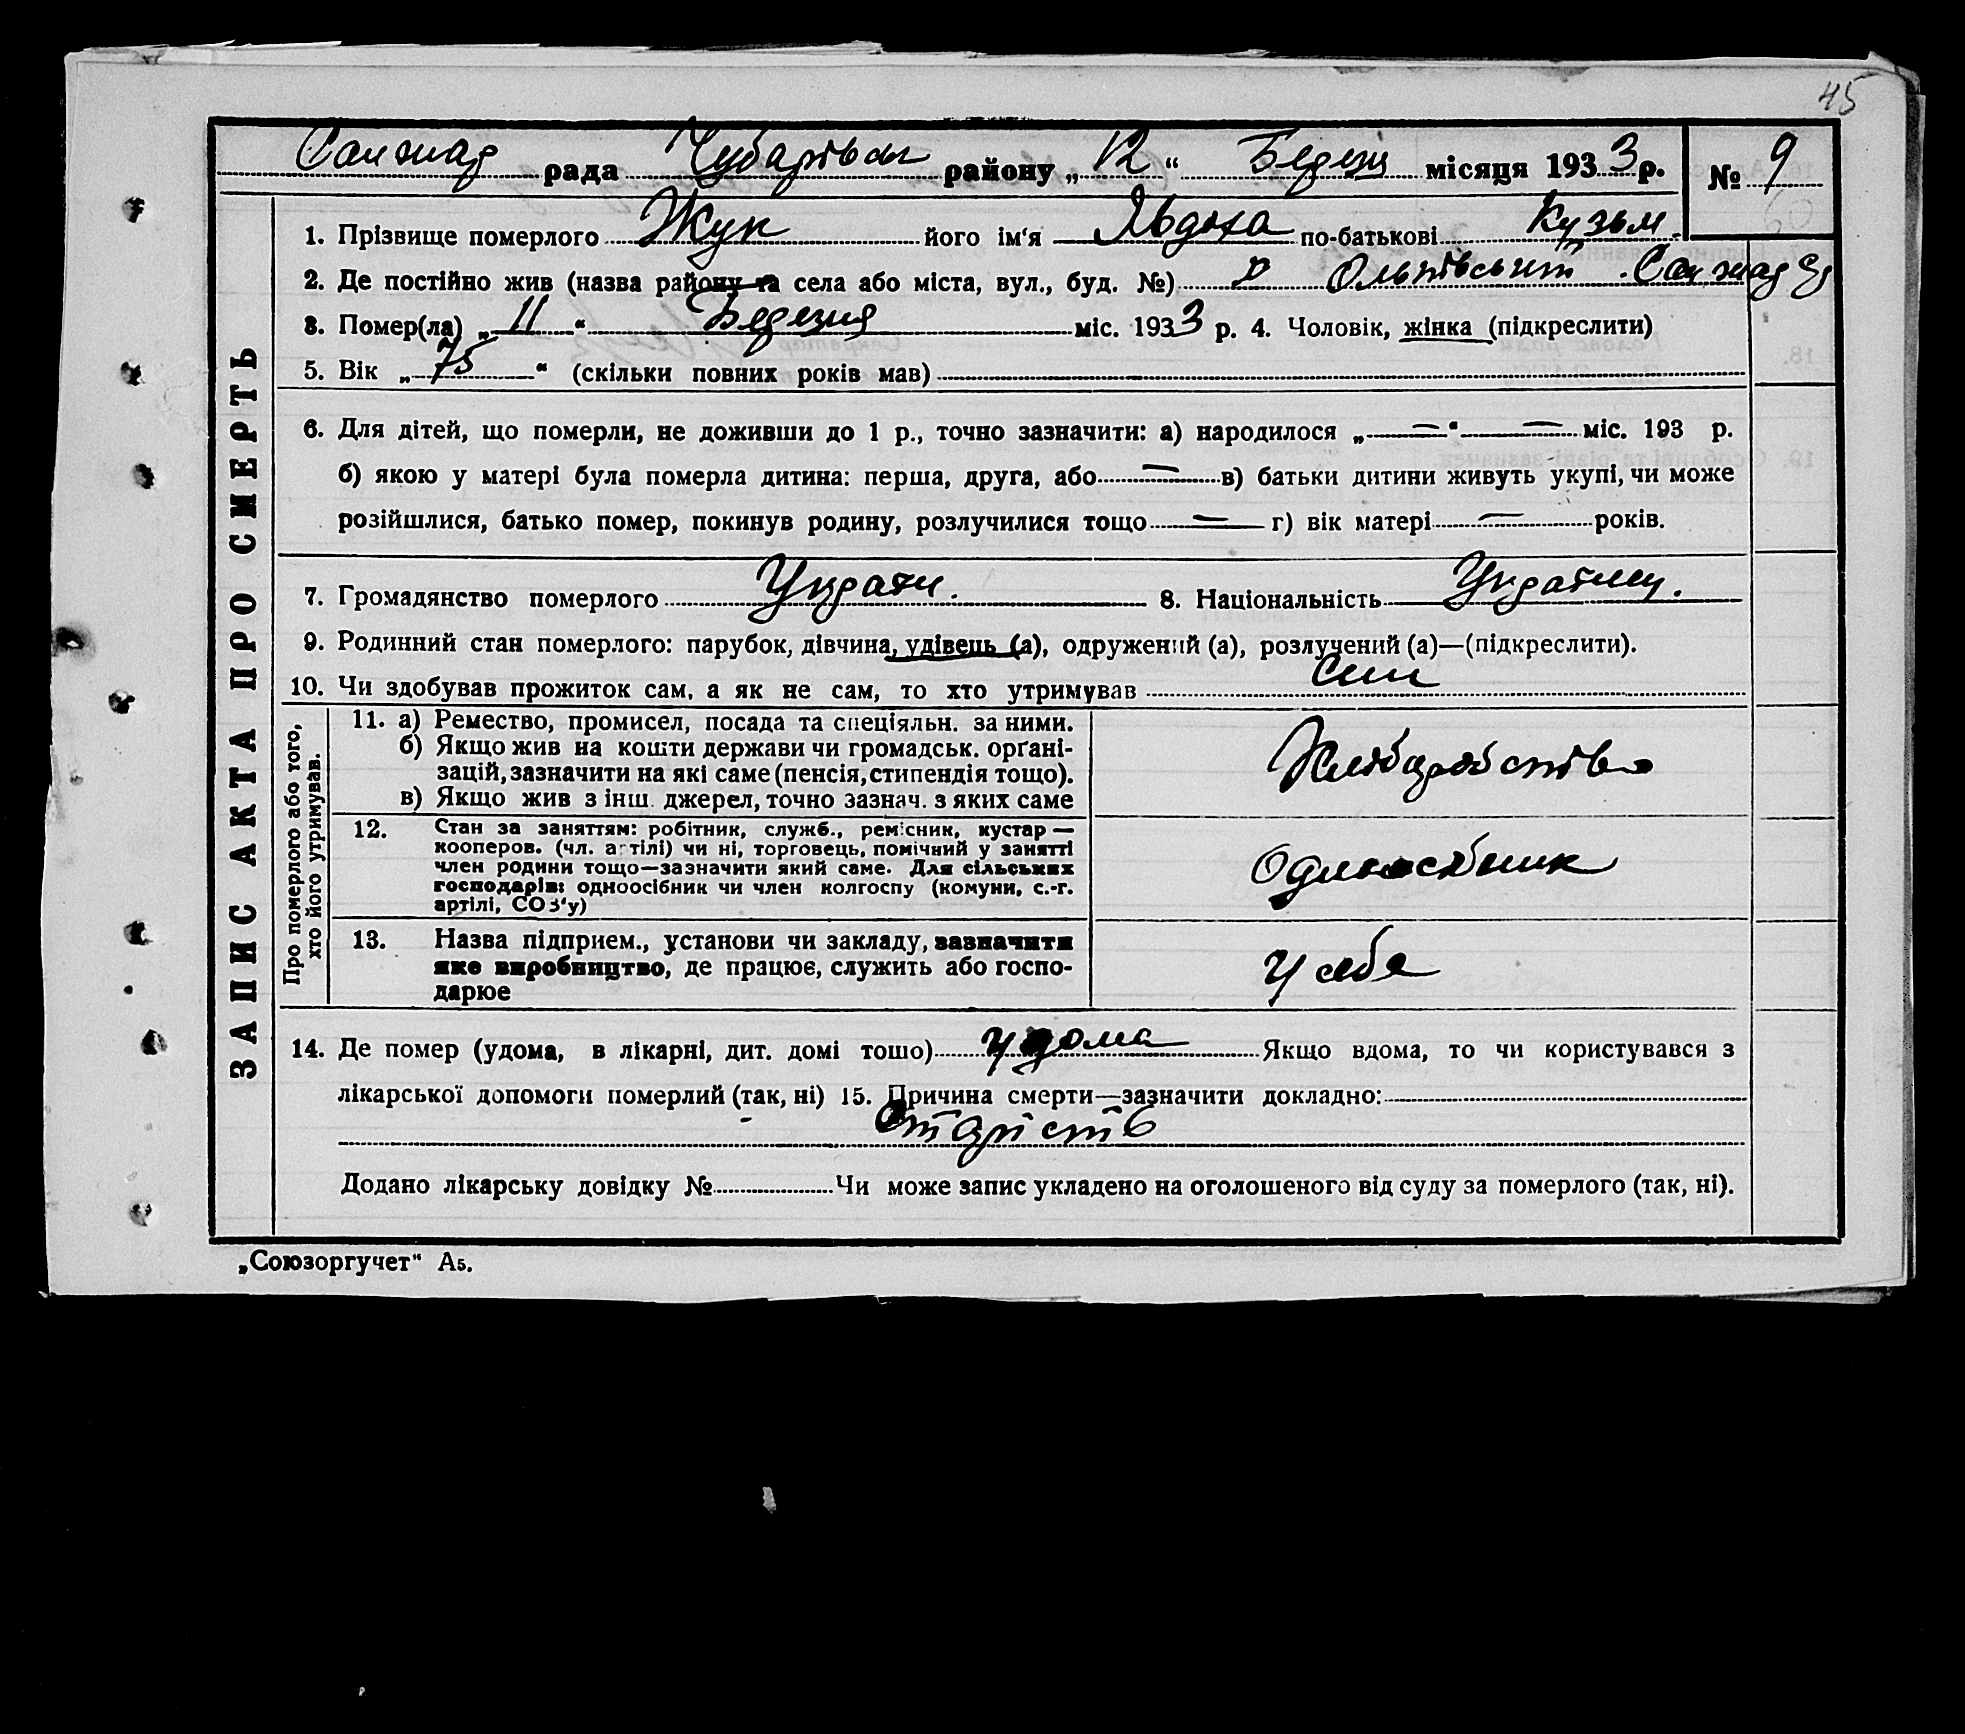 45
Санжар рада Чубарівськ району „12“ Березн місяця 1933 р. № 9
60
1. Прізвище померлого Жук його ім'я Явдоха по-батькові Кузьм.
2. Де постійно жив (назва району та села або міста, вул., буд. №)
3. Помер(ла) „11“ Березня міс. 1933 р. 4. Чоловік, жінка (підкреслити)
5. Вік „75“ (скільки повних років мав)
6. Для дітей, що померли, не доживши до 1 р., точно зазначити: а) народилося „—“ — міс. 193 р.
б) якою у матері була померла дитина: перша, друга, або — в) батьки дитини живуть укупі, чи може
розійшлися, батько помер, покинув родину, розлучилися тощо — г) вік матері — років.
7. Громадянство померлого Украін. 8. Національність
9. Родинний стан померлого: парубок, дівчина, удівець (а), одружений (а), розлучений (а)—(підкреслити).
10. Чи здобував прожиток сам, а як не сам, то хто утримував Син
11. а) Ремество, промисел, посада та спеціяльн. за ними.
б) Якщо жив на кошти держави чи громадськ. орґані-
зацій, зазначити на які саме (пенсія, стипендія тощо).
в) Якщо жив з інш. джерел, точно зазнач. з яких саме
Хліборобство
12. Стан за заняттям: робітник, служб., ремісник, кустар —
кооперов. (чл. артілі) чи ні, торговець, помічний у занятті
член родини тощо—зазначити який саме. Для сільських
господарів: одноосібник чи член колгоспу (комуни, с.-г.
артілі, СОЗ'у)
Одноосібник
13. Назва підприєм., установи чи закладу, зазначити
яке виробництво, де працює, служить або госпо-
дарює
У себе
14. Де помер (удома, в лікарні, дит. домі тошо) у дома Якщо вдома, то чи користувався з
лікарської допомоги померлий (так, ні) 15. Причина смерти—зазначити докладно:
Старість
Додано лікарську довідку № Чи може запис укладено на оголошеного від суду за померлого (так, ні).
ЗАПИС АКТА ПРО СМЕРТЬ
Про померлого або того,
хто його утримував.
„Союзоргучет“ А5.